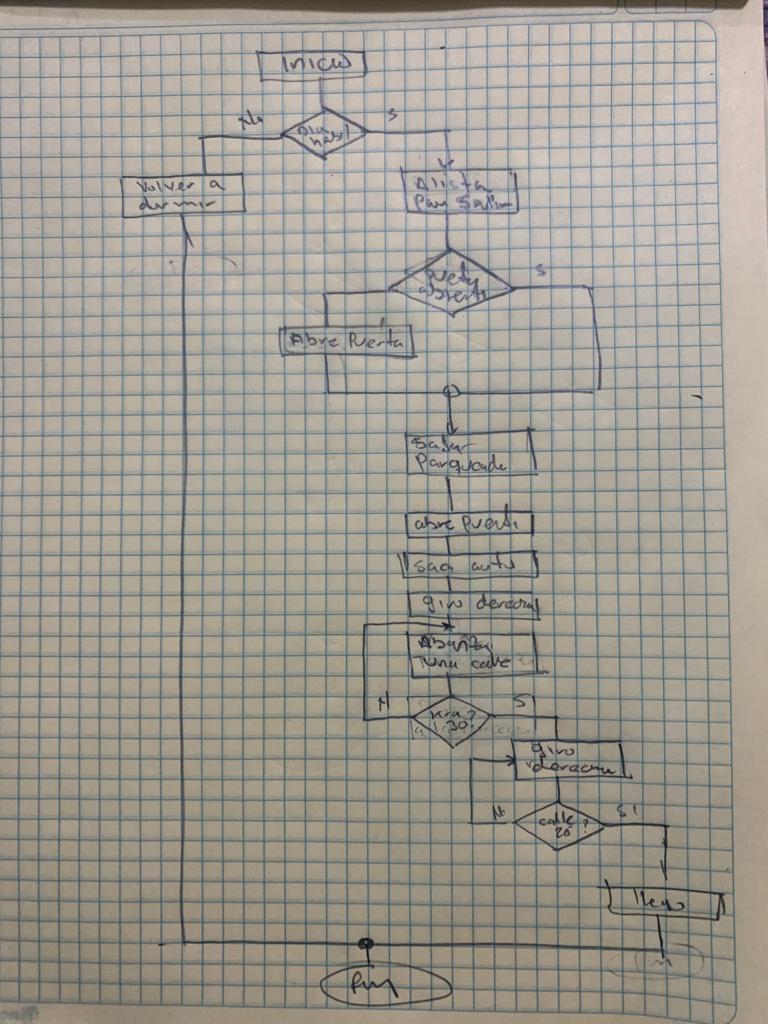 Inicio
No
S
Dia
habil
Volver a
dormir
Alista
Para Salir
puerta
abierta
S
Abre Puerta
Parqueade
abre Puerta
Saca auto
giro derecha
calle
N
S
kra ?
30?
giro
derecha
No
calle ?
20
SI
llego
Fin